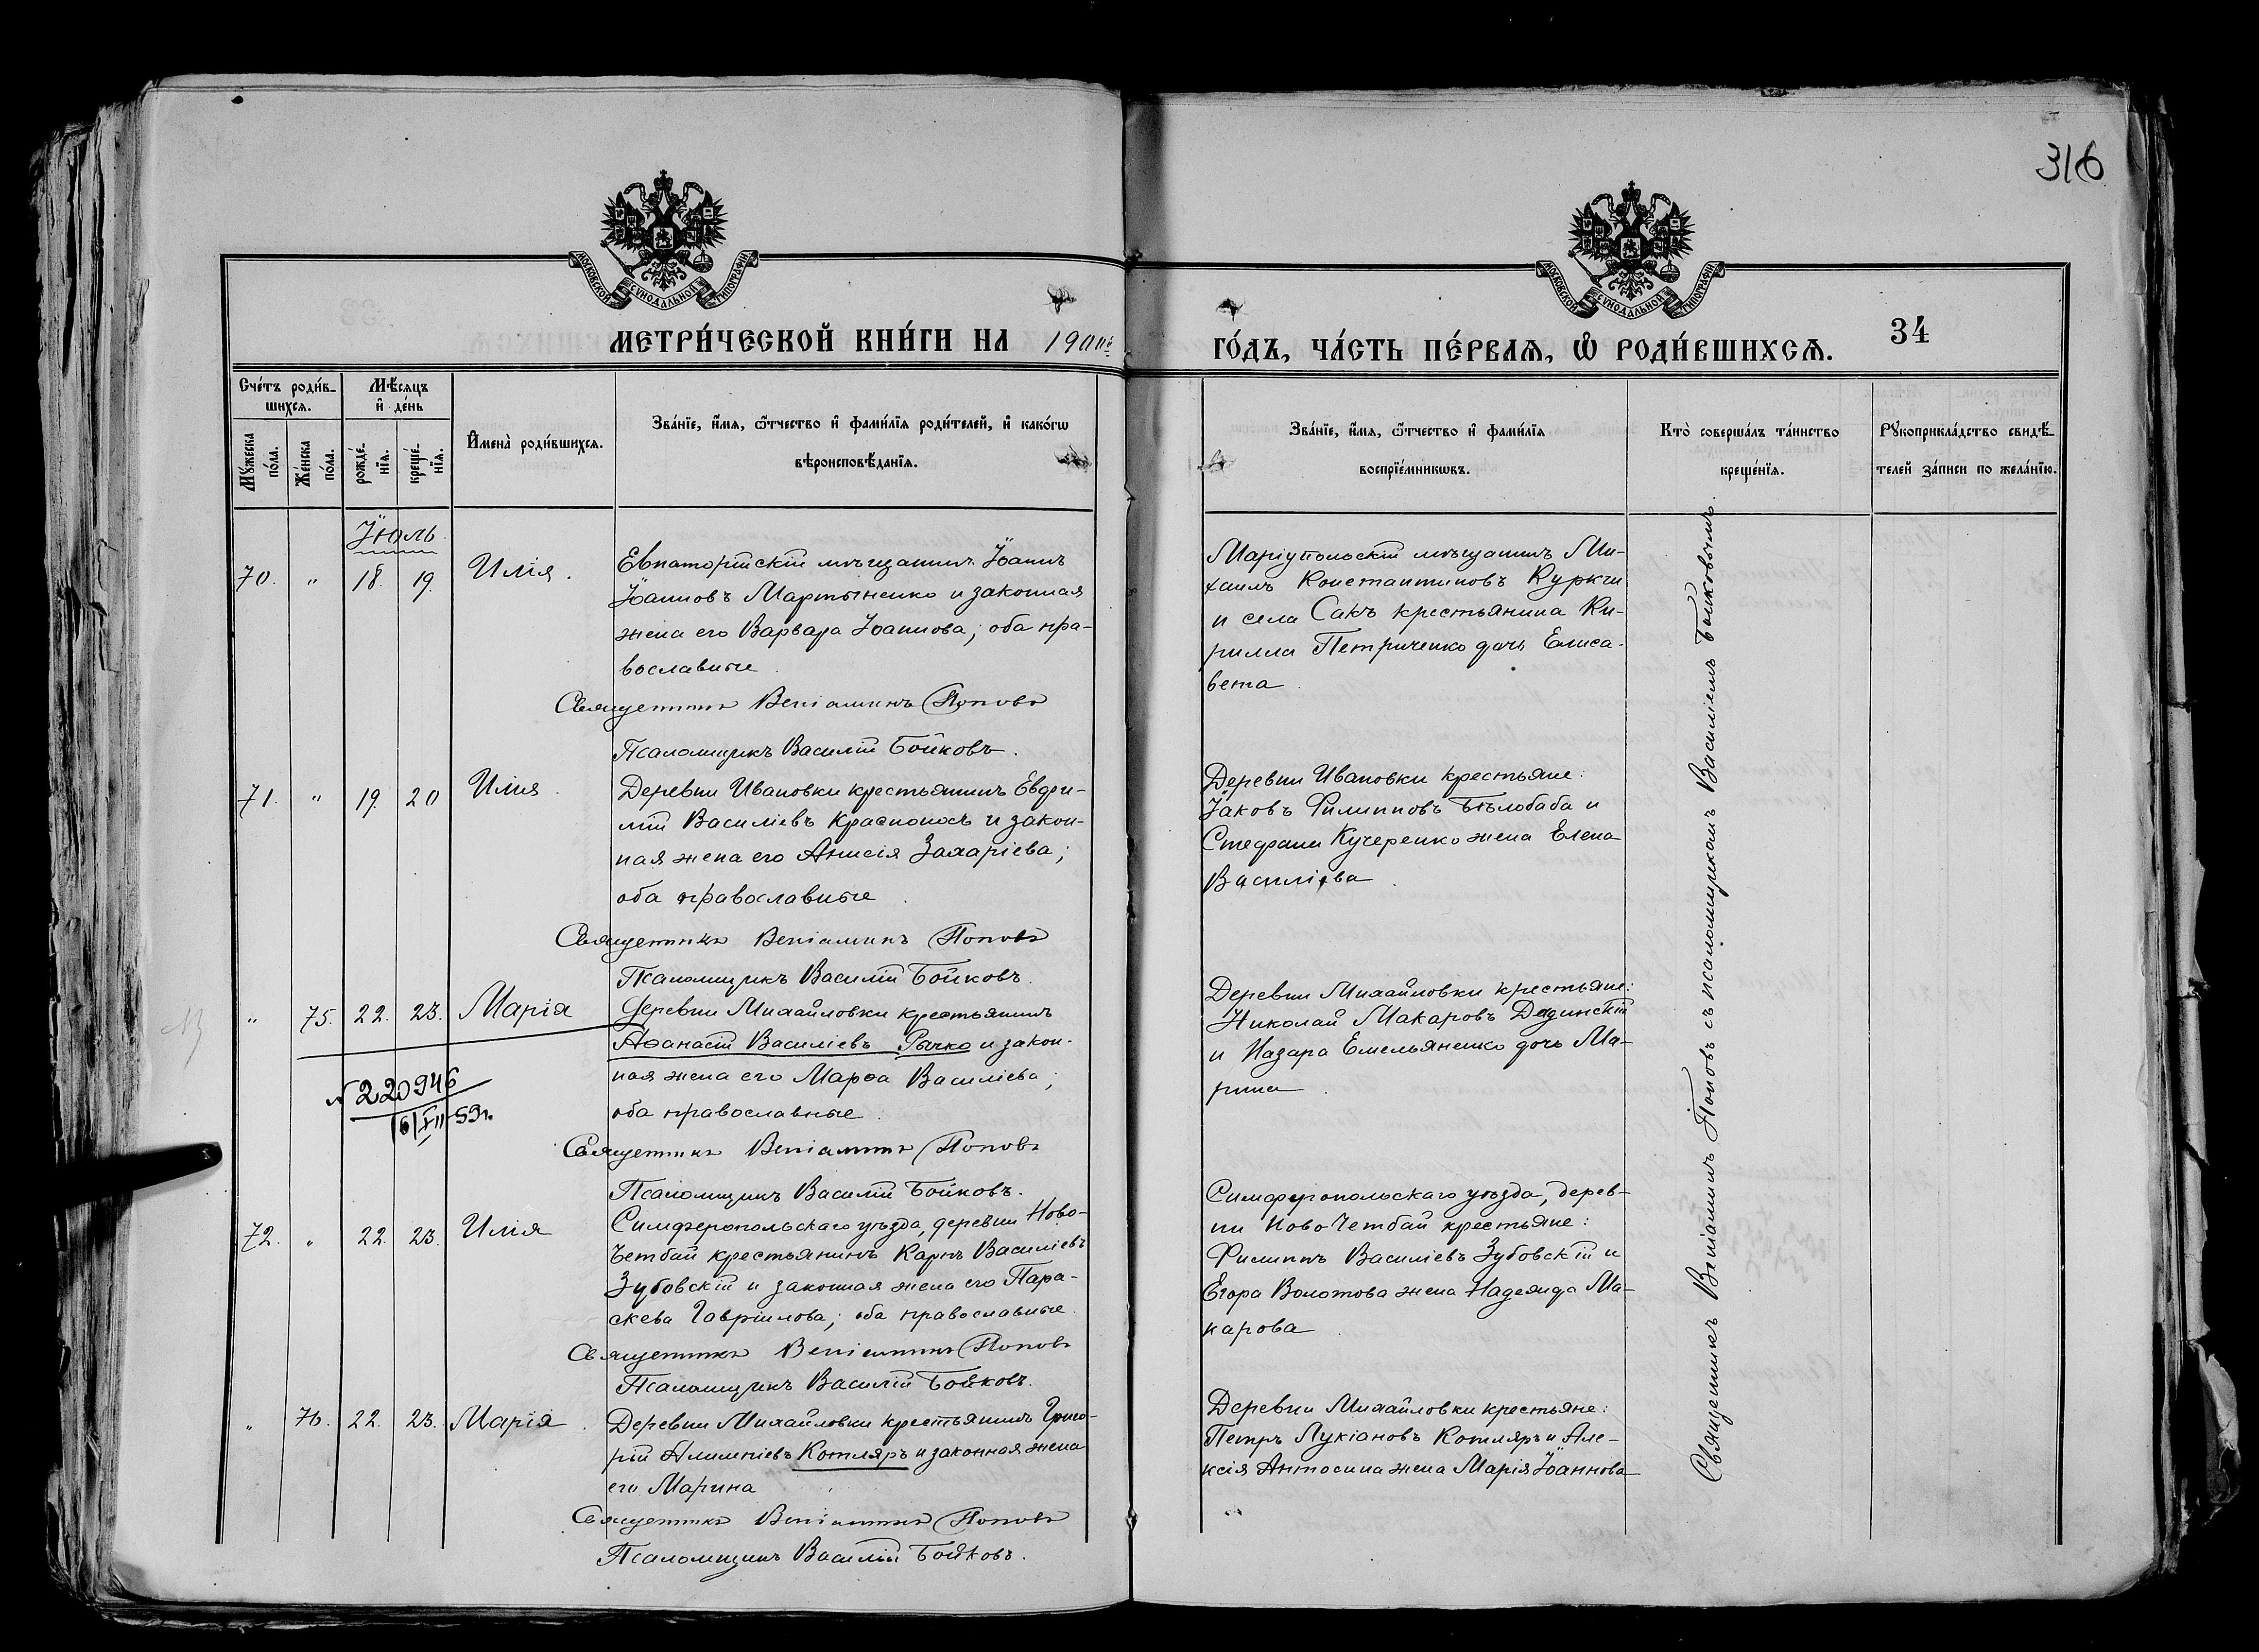 316
МОСКОВСКОЙ СУНОДАЛЬНОЙ ТИПОГРАФІИ
МОСКОВСКОЙ СУНОДАЛЬНОЙ ТИПОГРАФІИ
МЕТРИ́ЧЕСКОЙ КНИ́ГИ НА
ГО́ДЪ, ЧА́СТЬ ПЕ́РВАѦ, Ѡ҆ РОДИ́ВШИХСѦ.
34
Сче́тъ роди́в-
шихсѧ.
Мѣ́сѧцъ
и҆ де́нь
Мꙋ́жеска
по́ла.
Же́нска
по́ла.
рожде́-
нїѧ.
креще́-
нїѧ.
И҆мена̀ роди́вшихсѧ.
Зва́нїе, и҆́мѧ, ѻ҆́тчество и҆ фами́лїѧ роди́телей, и҆ како́гѡ
вѣроисповѣ́данїѧ.
Зва́нїе, и҆́мѧ, ѻ҆́тчество и҆ фами́лїѧ
воспрїе́мникѡвъ.
Кто̀ соверша́лъ та́инство
креще́нїѧ.
Рꙋкоприкла́дство свидѣ́-
телей за́писи по жела́нїю.
Іюль
70. " 18. 19. Илія.
Евпаторійскій мѣщанинъ Іоаннъ
Іоанновъ Мартыненко и законная
жена его Варвара Іоаннова; оба пра-
вославные.
Священникъ Веніаминъ Поповъ
Псаломщикъ Василій Бойковъ.
Маріупольскій мѣщанинъ Ми-
хаилъ Константиновъ Куркчи
и села Сакъ крестьянина Ки-
рилла Петриченко дочь Елиса-
вета.
71. " 19. 20 Илія.
Деревни Ивановки крестьянинъ Евфи-
мій Василіевъ Красноносъ и закон-
ная жена его Анисія Захаріева;
оба православные.
Священникъ Веніаминъ Поповъ
Псаломщикъ Василій Бойковъ.
Деревни Ивановки крестьяне:
Іаковъ Филипповъ Бѣлобаба и
Стефана Кучеренко жена Елена
Василіева.
" 75. 22. 23. Марія
Деревни Михайловки крестьянинъ
Аѳанасій Василіевъ Рычко и закон-
ная жена его Марѳа Василіева;
оба православные.
Священникъ Веніаминъ Поповъ
Псаломщикъ Василій Бойковъ.
Деревни Михайловки крестьяне:
Николай Макаровъ Дединскій
и Назара Емельяненко дочь Ма-
рина.
№ 220946
16/XII-59г.
72. " 22. 23. Илія
Симферопольскаго уѣзда, деревни Ново-
Четбай крестьянинъ Карпъ Василіевъ
Зубовскій и законная жена его Пара-
скева Гавріилова; оба православные.
Священникъ Веніаминъ Поповъ
Псаломщикъ Василій Бойковъ.
Симферопольскаго уѣзда, дерев-
ни Ново Четбай крестьяне:
Филиппъ Василіевъ Зубовскій и
Егора Волотова жена Надежда Ма-
карова.
" 76. 22. 23. Марія.
Деревни Михайловки крестьянинъ Григо-
рій Алимпіевъ Котляръ и законная жена
его Марина
Священникъ Веніаминъ Поповъ
Псаломщикъ Василій Бойковъ.
Деревни Михайловки крестьяне:
Петръ Лукіановъ Котляръ и Але-
ксія Антосина жена Марія Іоаннова
Священникъ Веніаминъ Поповъ съ псаломщикомъ Василіемъ Бойковымъ.